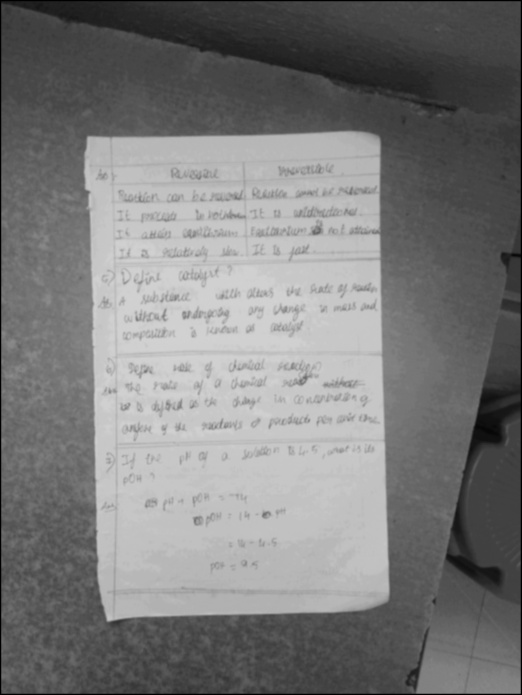 Ans:-
Reversible Irreversible
Reaction can be reversed Reaction cannot be reversed
It proceeds in both It is unidirectional.
It attains equilibrium Equilibrium is not attained
It is relatively slow It is fast.
5) Define catalyst?
Ans: A substance which alters the rate of reaction
without undergoing any change in mass and
composition is known as catalyst.
6) Define rate of chemical reaction
Ans: The rate of a chemical reaction
is defined as the change in concentration of
any one of the reactants or products per unit time.
7) If the pH of a solution is 4.5, what is its
pOH?
Ans: pH + pOH = 14
pOH = 14 - pH
= 14 - 4.5
pOH = 9.5